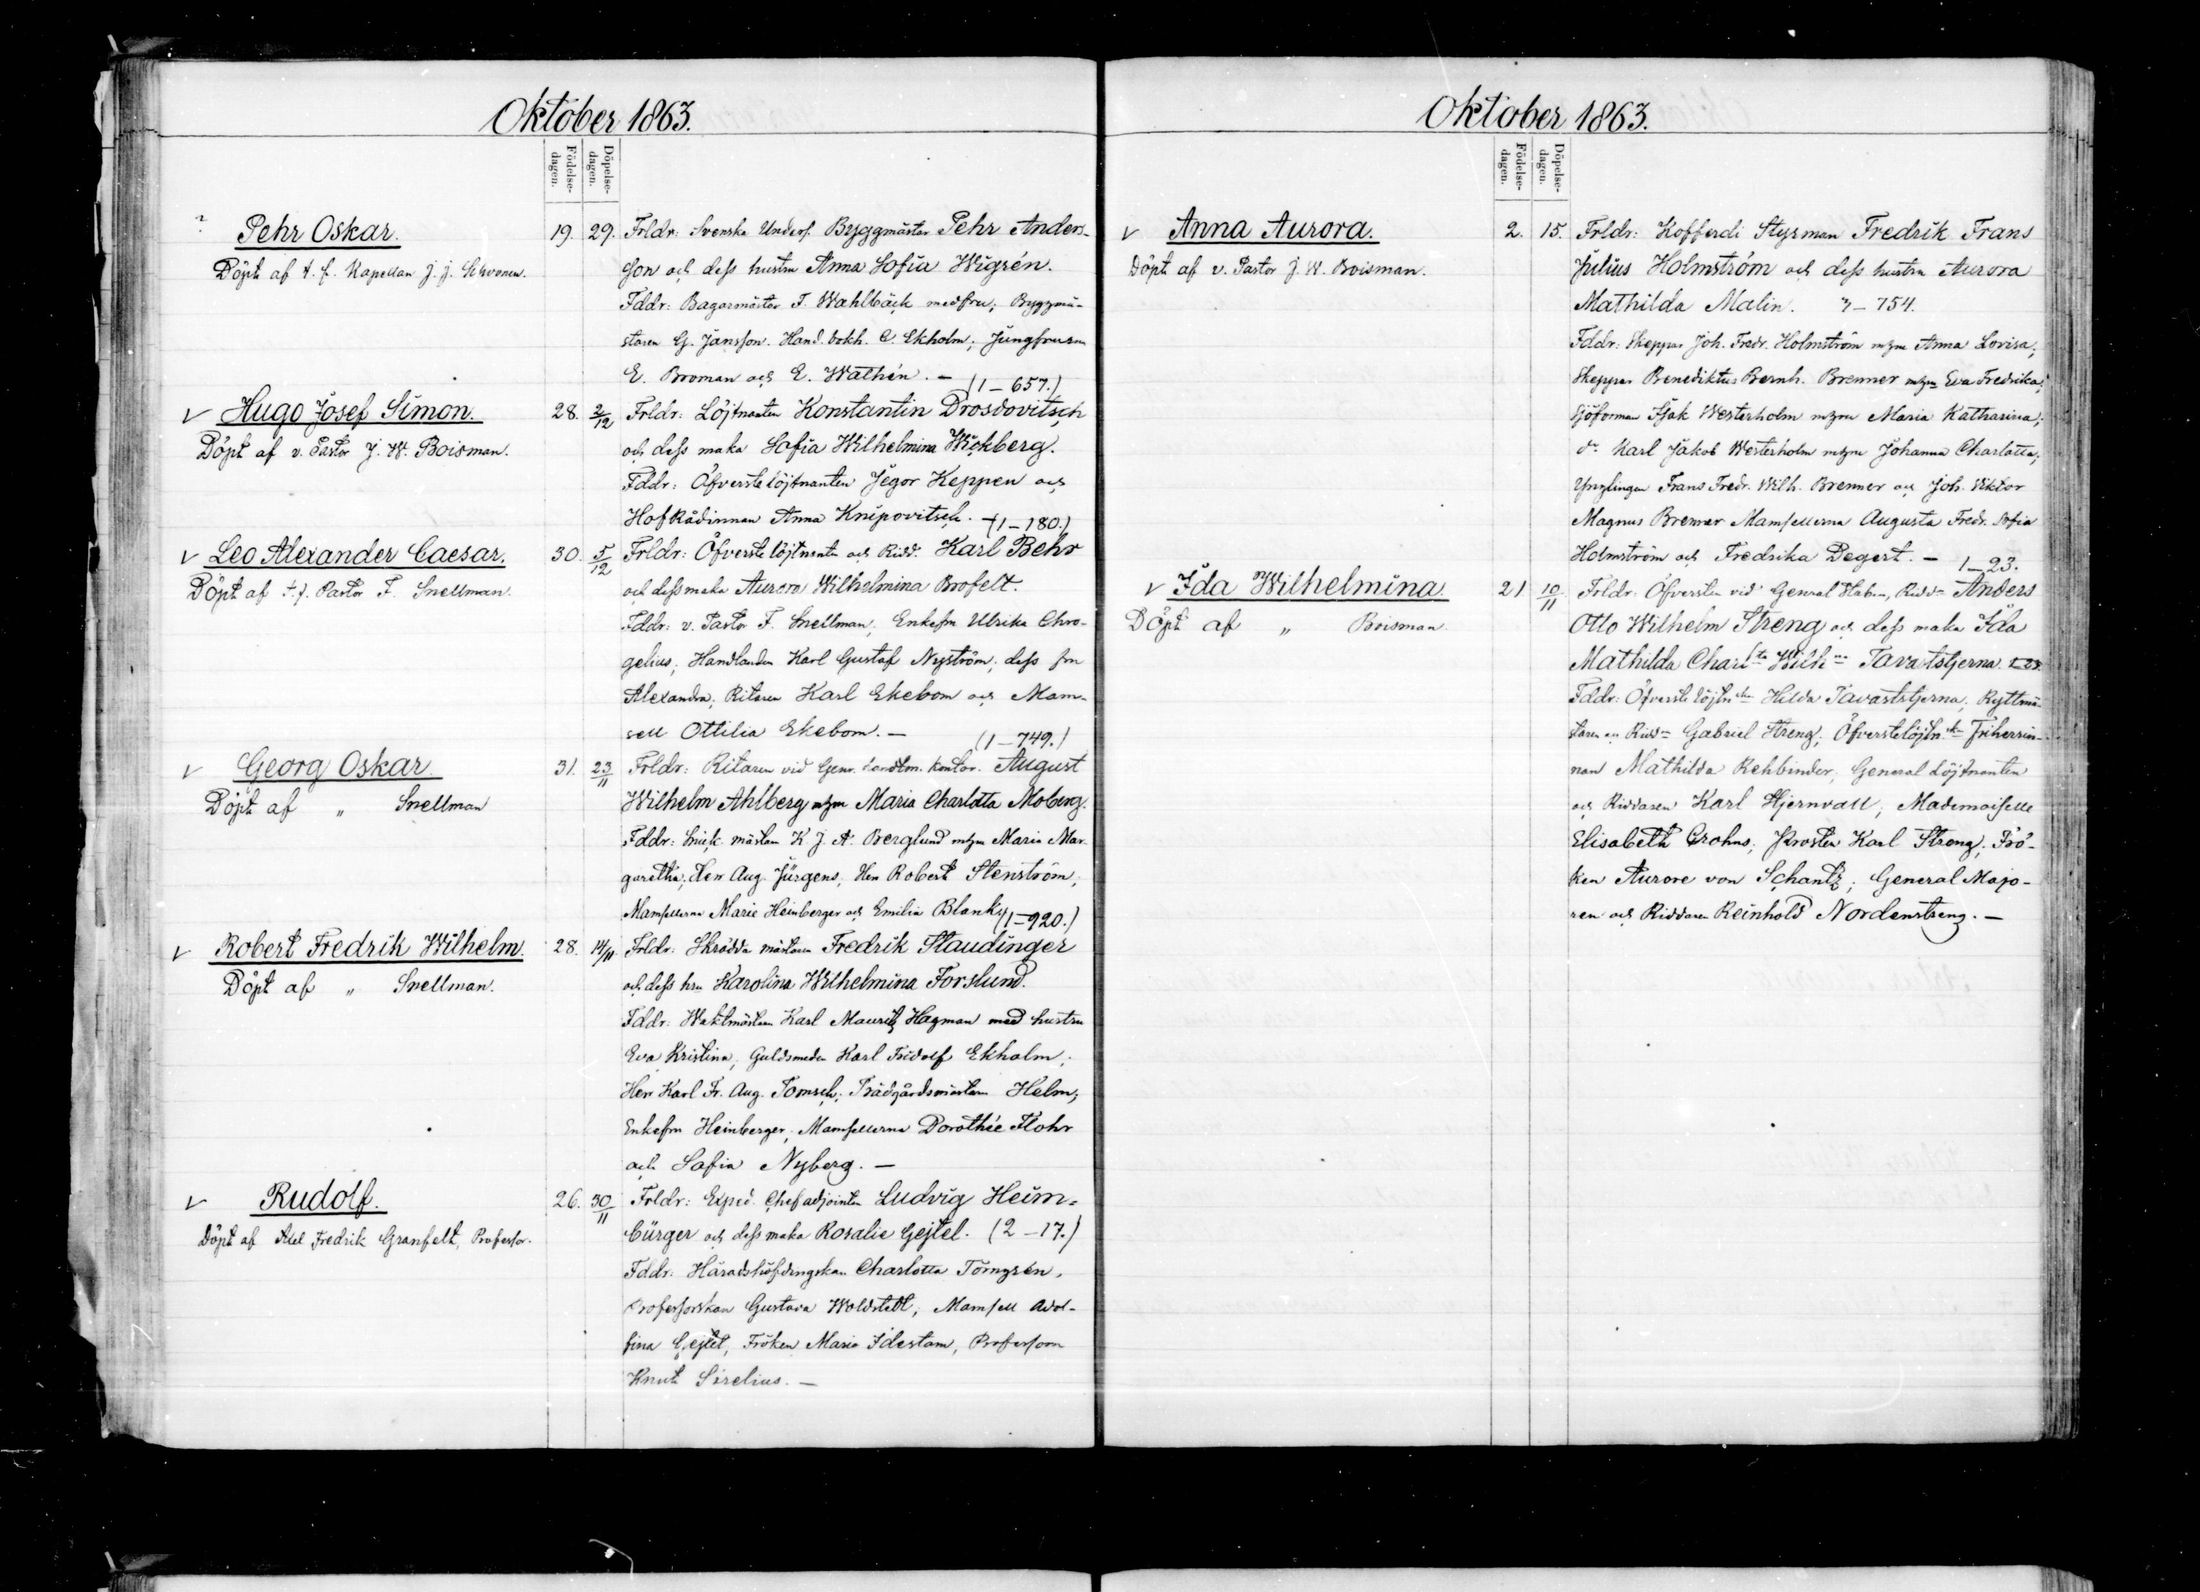 Oktober 1863.
Födelse-dagen.
Döpelse-dagen.
Pehr Oskar.
Döpt af t. f. Kapellan J. J.
19. 29.
Frldr: Svenska Unders. Byggmästar Pehr Anders-
son och dess hustru Anna Sofia Wigrén.
Fddr: Bagarmästar F. Wahlbäck med fru; Byggmä-
staren G. Jansson. Hand. bokh. C. Ekholm; Jungfruarna
E. Broman och E. Wathén. — (1–657.)
Hugo Josef Simon.
Döpt af v. Pastor J. W. Boisman.
28. 2/12
Frldr: Löjtnanten Konstantin Drosdovitsch
och dess maka Sofia Wilhelmina Wickberg.
Fddr: Öfverstelöjtnanten Jegor Keppen och
Hofrådinnan Anna Knipovitsch. — (1–180.)
Leo Alexander Caesar.
Döpt af t. f. Pastor F. Snellman.
30. 5/12
Frldr: Öfverstelöjtnanten och Ridd. Karl Behr
och dess maka Aurora Wilhelmina Brofelt.
Fddr: v. Pastor F. Snellman; Enkefru Ulrika Chro-
gelius; Handlanden Karl Gustaf Nyström; dess fru
Alexandra; Ritaren Karl Ekebom och Mam-
sell Ottilia Ekebom. — (1–749.)
Georg Oskar
Döpt af „ Snellman
31. 23/11
Frldr: Ritaren vid Genr. Landtm. kontor. August
Wilhelm Ahlberg mzm Maria Charlotta Moberg.
Fddr: Snick. mästaren K. J. A. Berglund mzm Maria Mar-
garetha; Herr Aug. Jürgens; Herr Robert Stenström;
Mamsellerna Marie Heinberger och Emilia Blanky (1–920.)
Robert Fredrik Wilhelm.
Döpt af „ Snellman.
28. 14/11
Frldr: Skräddamästaren Fredrik Staudinger
och dess hru Karolina Wilhelmina Forslund.
Fddr: Waktmästaren Karl Mauritz Hagman med hustru
Eva Kristina; Guldsmeden Karl Fridolf Ekholm;
Herr Karl Fr. Aug. Tomsch; Trädgårdsmästaren Helm;
Enkefru Heinberger; Mamsellerna Dorothée Flohr
och Sofia Nyberg. —
Rudolf.
Döpt af Axel Fredrik Granfelt, Professor.
26. 30/11
Frldr: Exped. Chefadjointen Ludvig Heim-
bürger och dess maka Rosalie Gejtel. (2–17.)
Fddr: Häradshöfdingskan Charlotta Törngrén,
Professorskan Gustava Woldstedt, Mamsell Adol-
fina Gejtel, Fröken Maria Idestam, Professorn
Knut Sirelius. —
Oktober 1863.
Födelse-dagen.
Döpelse-dagen.
Anna Aurora.
Döpt af v. Pastor J. W. Boisman.
2. 15.
Frldr: Kofferdi Styrman Fredrik Frans
Julius Holmström och dess hustru Aurora
Mathilda Malin. – 754.
Fddr: Skeppar Joh. Fredr. Holmström mzm Anna Lovisa;
Skeppar Benediktus Bernh. Brenner mzm Eva Fredrika;
Sjöforman Isak Westerholm mzm Maria Katharina;
do Karl Jakob Westerholm mzm Johanna Charlotta;
Ynglingen Frans Fredr. Wilh. Brenner och Joh. Viktor
Magnus Brenner Mamsellerna Augusta Fredr. Sofia
Holmström och Fredrika Degert. — 1–23.
Ida Wilhelmina.
Döpt af „ Boisman
21 10/11
Frldr: Öfversten vid General Staben, Ridd. Anders
Otto Wilhelm Streng och dess maka Ida
Mathilda Charlta Wilh. Tavaststjerna
Fddr: Öfverstelöjtn. Hilda Tavaststjerna; Ryttmä-
staren och Ridd. Gabriel Streng; Öfverstelöjtn. Friherrin-
nan Mathilda Rehbinder; General Löjtnanten
och Riddaren Karl Hjernvall; Mademoiselle
Elisabeth Crohns; Prosten Karl Streng; Frö-
ken Aurore von Schantz; General Majo-
ren och Riddaren Reinhold Nordenstreng. —